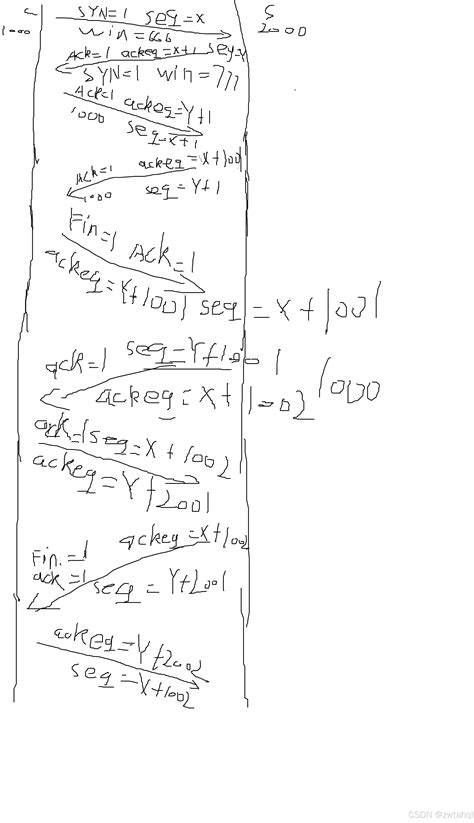 C SYN=1 seq=X S
1000 win=666 2000
Ack=1 ackeq=x+1 seq=Y
SYN=1 win=777
Ack=1 ackeq=Y+1
1000 seq=x+1
ACK=1 ackeq=X+1001
1000 seq=Y+1
Fin=1 ACK=1
ackeq=Y+1001 seq=X+1001
ack=1 seq=Y+1001 1000
ackeq=X+1002
ack=1 seq=X+1002
ackeq=Y+2001
ackeq=X+1002
Fin.=1
ack=1 seq=Y+2001
ackeq=Y+2002
seq=X+1002